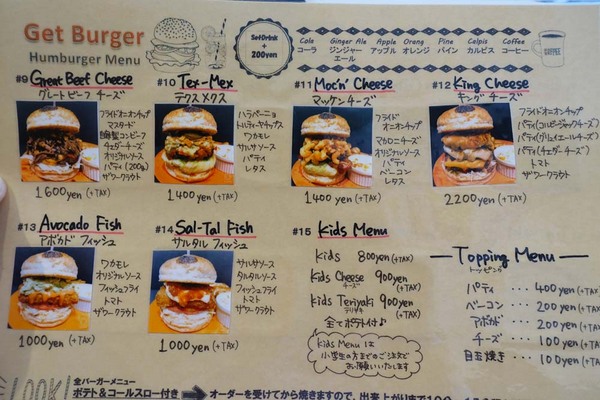 Get Burger
Humburger Menu
Set Drink
+
200yen
Cola Ginger Ale Apple Orang Pine Calpis Coffee
コーラ ジンジャーエール アップル オレンジ パイン カルピス コーヒー
COFFEE
#9 Great Beef Cheese
グレートビーフ チーズ
フライドオニオンチップ
マスタード
自家製コンビーフ
チェダーチーズ
オリジナルソース
パティ(200g)
ザワークラウト
1600yen (+TAX)
#10 Tex-Mex
テクスメクス
ハラペーニョ
トルティーヤチップス
ワカモレ
サルサソース
パティ
レタス
1400yen (+TAX)
#11 Moc'n' Cheese
マッケンチーズ
フライド
オニオンチップ
マカロニチーズ
オリジナルソース
パティ
ベーコン
レタス
1400yen (+TAX)
#12 King Cheese
キング チーズ
フライドオニオンチップ
パティ(コルビージャックチーズ)
パティ(グリュイエールチーズ)
パティ(チェダーチーズ)
トマト
ザワークラウト
2200yen (+TAX)
#13 Avocado Fish
アボカド フィッシュ
ワカモレ
オリジナルソース
フィッシュフライ
トマト
ザワークラウト
1000yen (+TAX)
#14 Sal-Tal Fish
サルタル フィッシュ
サルサソース
タルタルソース
フィッシュフライ
トマト
ザワークラウト
1000yen (+TAX)
#15 Kids Menu
Kids 800yen (+TAX)
Kids Cheese 900yen (+TAX)
チーズ
Kids Teriyaki 900yen (+TAX)
テリヤキ
全てポテト付♪
Kids Menu は
小学生の方までのご注文で
お願いいたします
Topping Menu
トッピング
パティ ・・・ 400yen (+TAX)
ベーコン ・・・ 200yen (+TA
アボカド ・・・ 200yen (+TA
チーズ ・・・ 100yen (+TA
目玉焼き ・・・ 100yen (+TA
LOOK!
全バーガーメニュー
ポテト&コールスロー付き ➡ オーダーを受けてから焼きますので、出来上がりまで